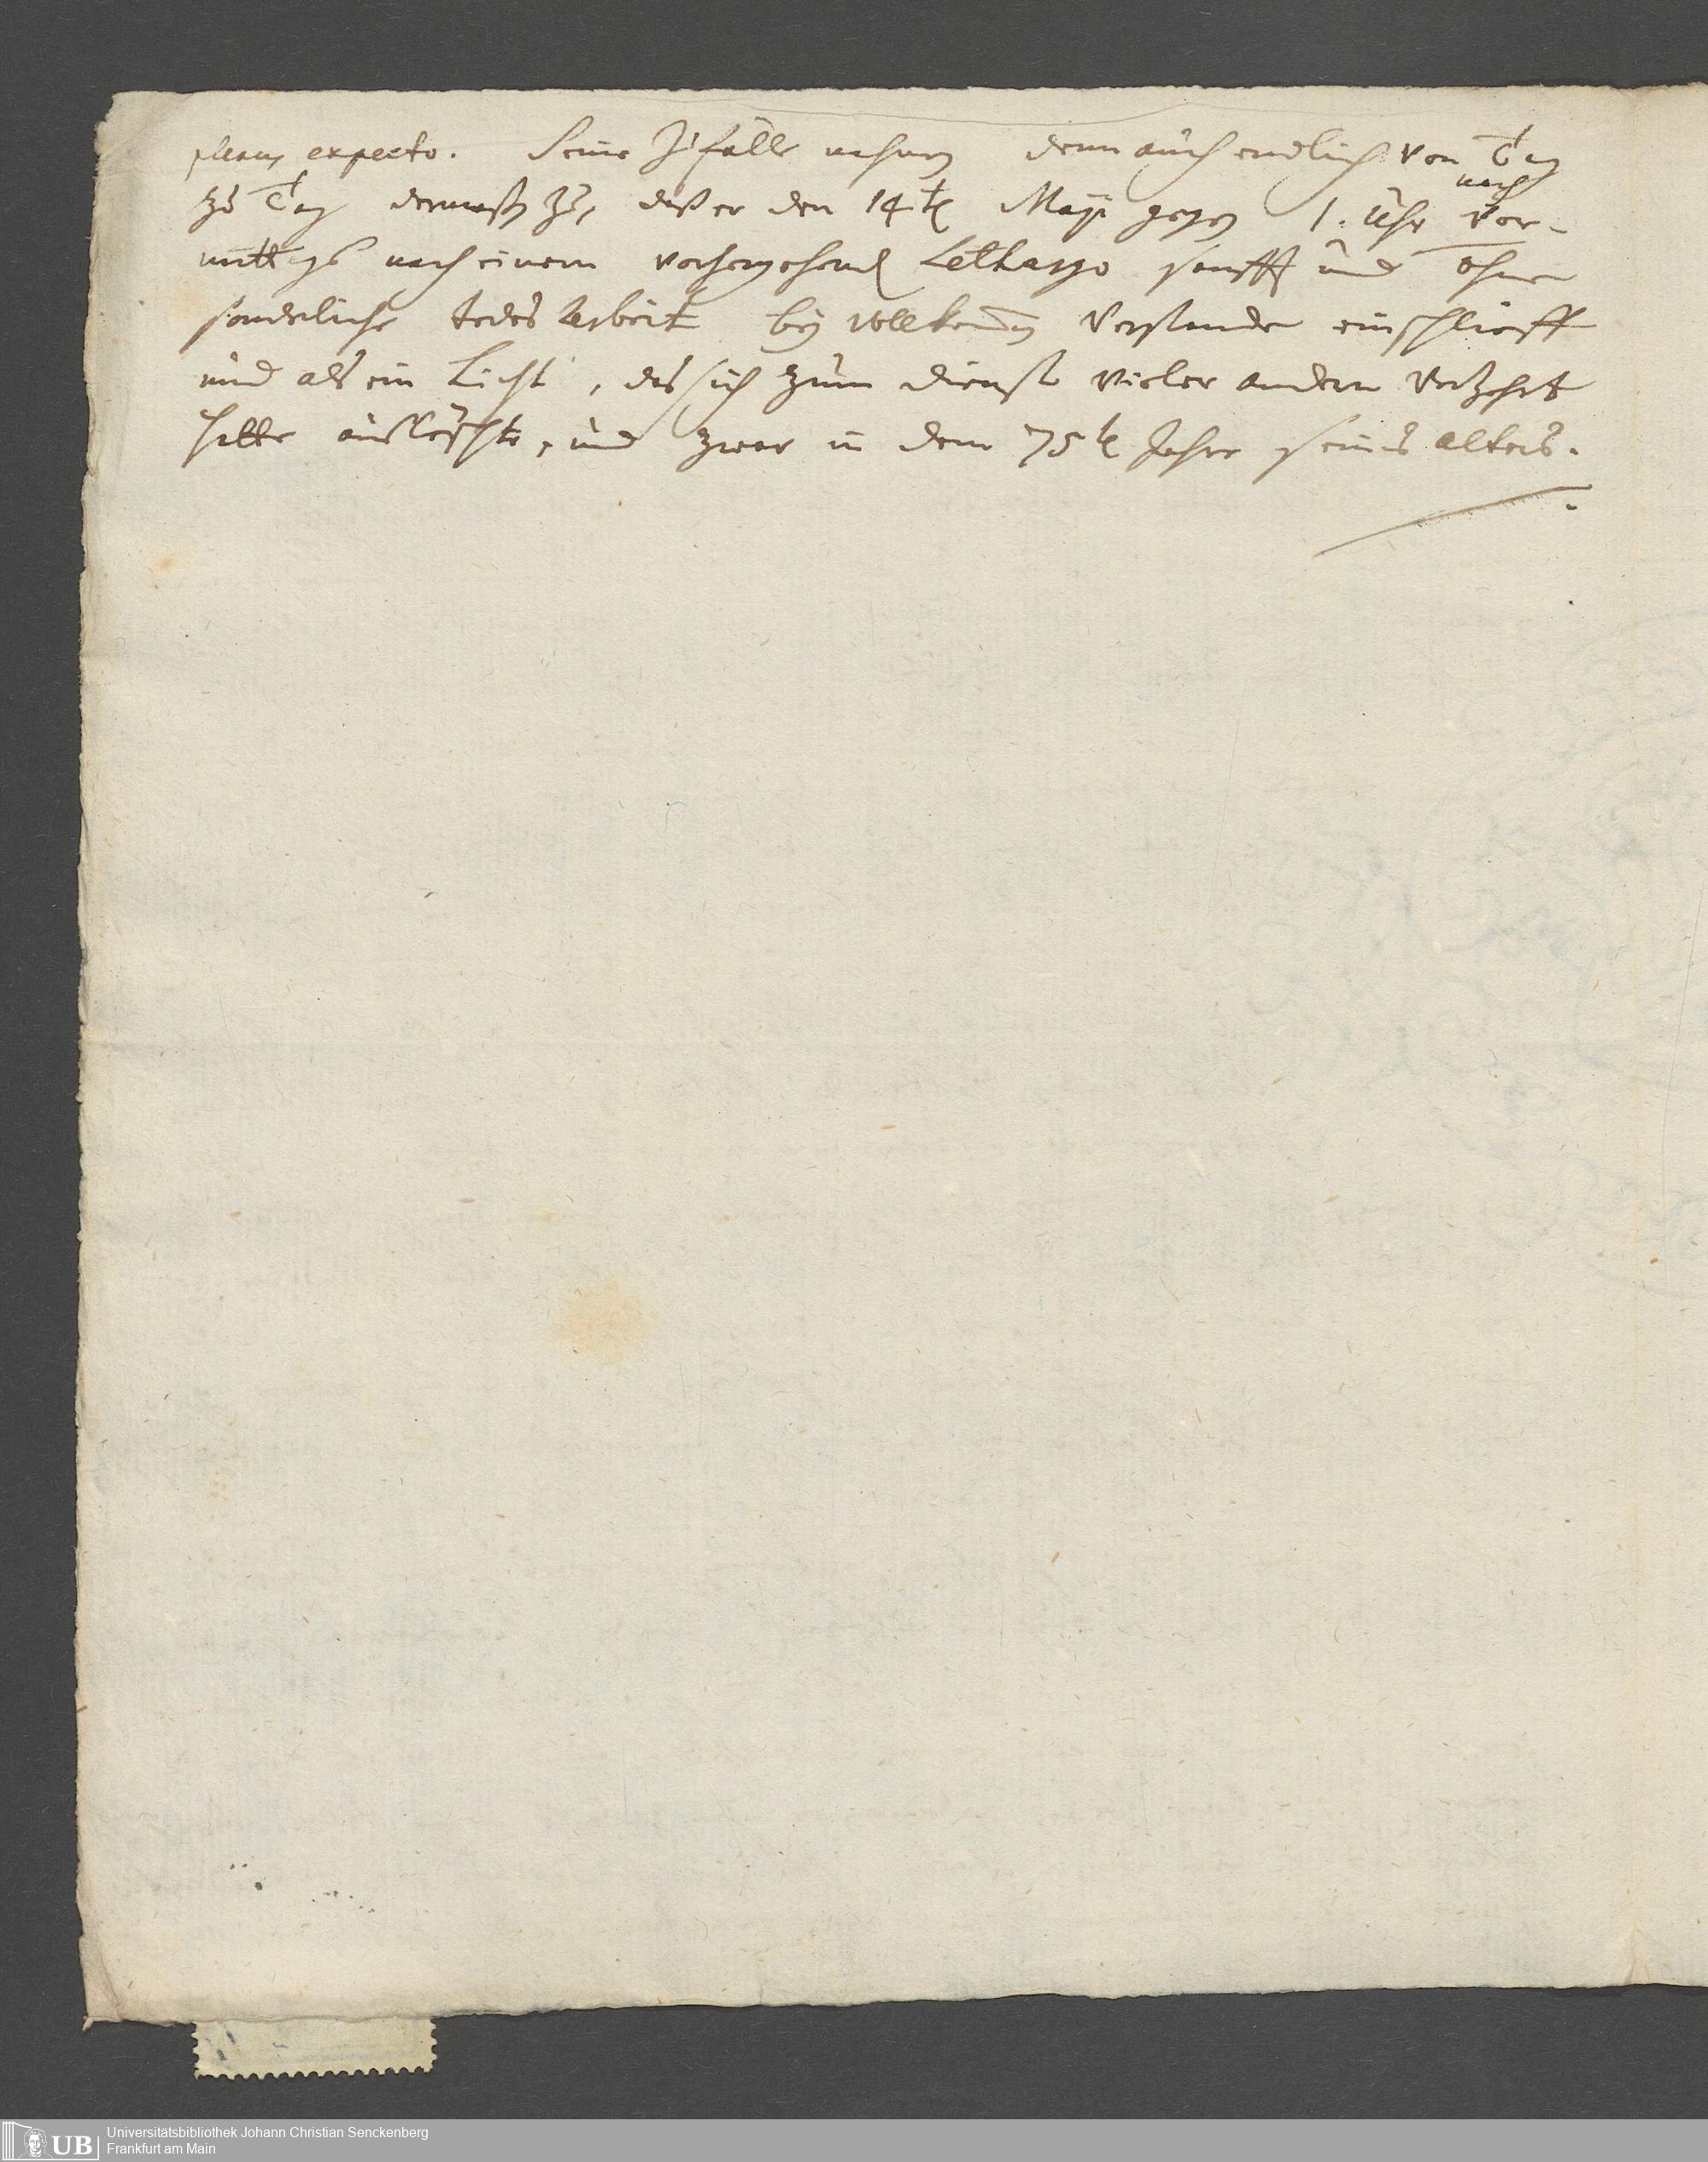 expecto. Seine Zufälle nahmen denn auch endlich von Tag
nach
zu Tag dermaßen zu, daß er den 14ten Maji gegen 1. Uhr vor-
mittags nach einem vorhergehenden Lethargo sanfft und ohne
sonderliche todes Arbeit bey vollkommen Verstande einschlieff
und als ein Licht, das sich zum dienste vieler andern verzehrt
hatte auslöschte, und zwar in dem 75ten Jahre seines alters.
UB
Universitätsbibliothek Johann Christian Senckenberg
Frankfurt am Main